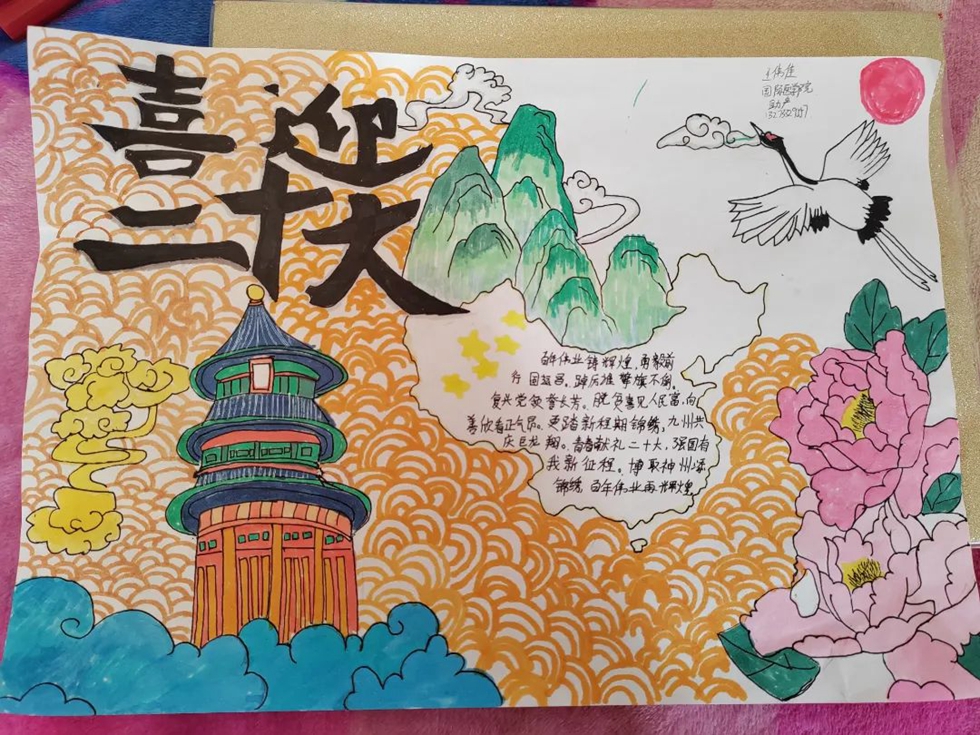 喜迎
二十大
国际医学院
助产
百年伟业铸辉煌,勇毅前
行国超昌。踔厉擎旗不倒,
复兴党领誉长芳。脱贫喜见人民富,向
善欣看正气昂。更踏新程期锦绣,九州共
庆巨龙翔。青春献礼二十大,强国有
我新征程。博取神州
锦绣,百年伟业再辉煌